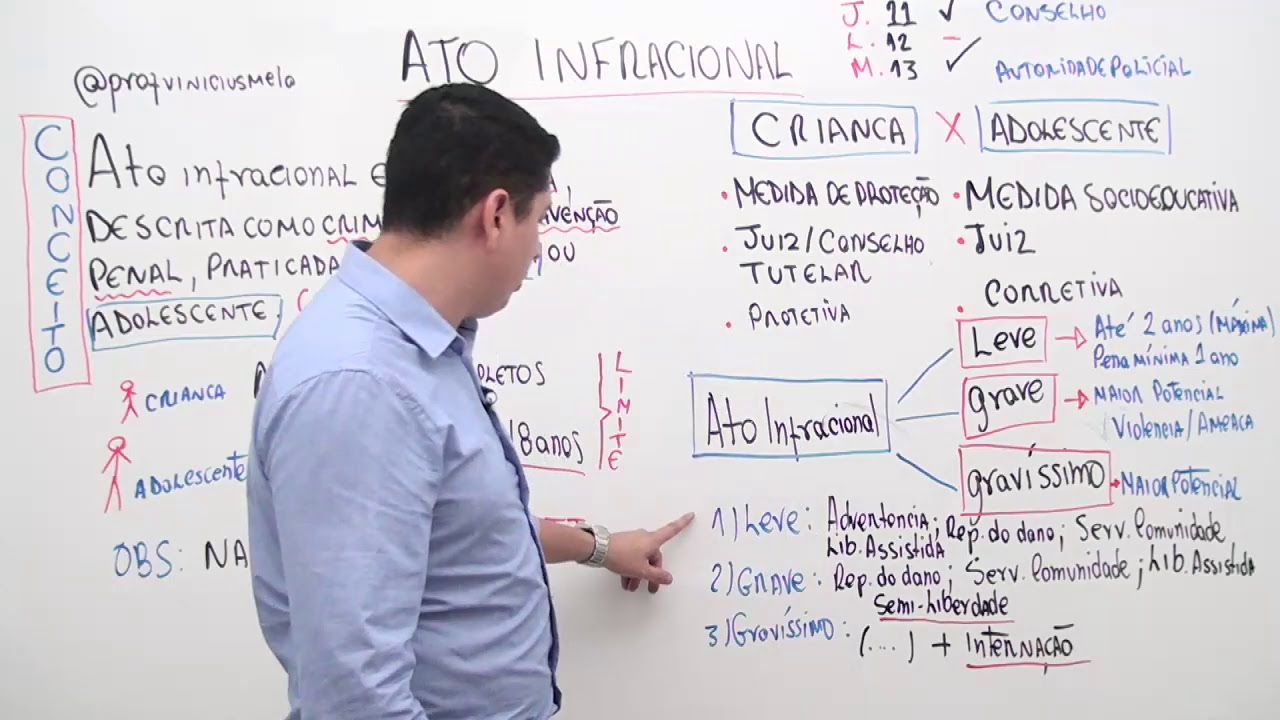 @profviniciusmelo
ATO INFRACIONAL
J. 11 ✓ CONSELHO
L. 12 –
M. 13 ✓ AUTORIDADE POLICIAL
CONCEITO
Ato infracional
DESCRITA COMO CRIM
VENÇÃO
PENAL, PRATICADA
OU
ADOLESCENTE
CRIANCA
PLETOS
ADOLESCENTE
18 anos
LIMITE
OBS: NA
CRIANCA X ADOLESCENTE
• MEDIDA DE PROTEÇÃO
• JUIZ/CONSELHO
TUTELAR
• PROTETIVA
• MEDIDA SOCIOEDUCATIVA
• JUIZ
• CORRETIVA
Ato Infracional
Leve → Até 2 anos (MÁXIMA)
Pena MÍNIMA 1 ano
grave → MAIOR POTENCIAL
Violencia/AMEACA
gravíssimo → MAIOR POTENCIAL
1) Leve: Adventencia; Rep. do dano; Serv. Comunidade
Lib. Assistida
2) GRAVE: Rep. do dano; Serv. Comunidade; Lib. Assistida
Semi-Liberdade
3) Gravíssimo: (....) + INTERNAÇÃO